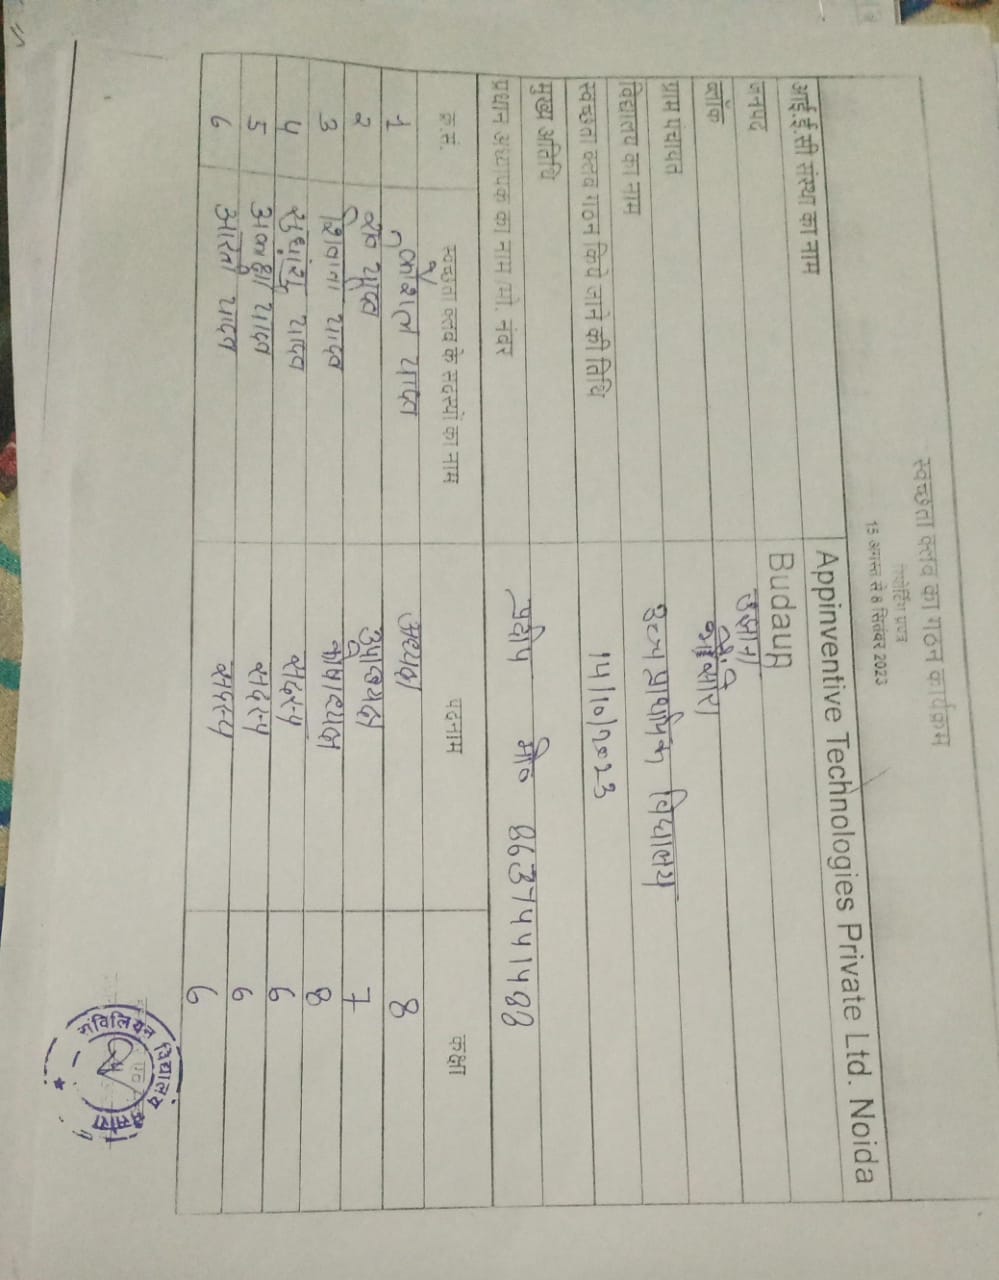 स्वच्छता क्लब का गठन कार्यक्रम
रिपोर्टिंग प्रपत्र
15 अगस्त से 8 सितंबर 2023
आई.ई.सी संस्था का नाम Appinventive Technologies Private Ltd. Noida
जनपद Budaun
ब्लॉक उसावां
ग्राम पंचायत
विद्यालय का नाम उच्च प्राथमिक विद्यालय
स्वच्छता क्लब गठन किये जाने की तिथि 14/10/2023
मुख्य अतिथि
प्रधान अध्यापक का नाम /मो. नंबर प्रदीप मो० 8637441488
क्र.सं. स्वच्छता क्लब के सदस्यों का नाम पदनाम कक्षा
1 यादव अध्यक्ष 8
2 उपाध्यक्ष 7
3 शिवानी यादव कोषाध्यक्ष 8
4 सुधांशु यादव सदस्य 6
5 यादव सदस्य 6
6 आरती यादव सदस्य 6
संविलियन विद्यालय